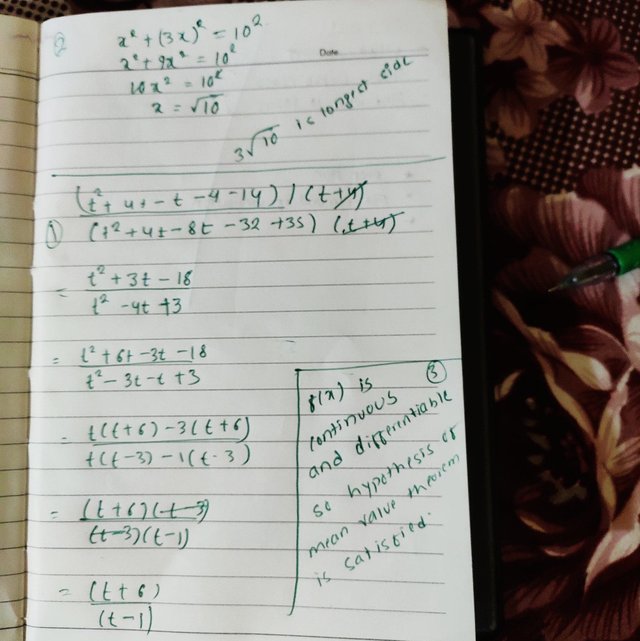 ②
x² + (3x)² = 10²
x² + 9x² = 10²
10x² = 10²
x = √10
Date
3√10 is longest side
①
(t² + 4t - t - 4 - 14) / (t+4)
(t² + 4t - 8t - 32 + 35) (t+4)
= t² + 3t - 18
t² - 4t + 3
= t² + 6t - 3t - 18
t² - 3t - t + 3
= t(t+6) - 3(t+6)
t(t-3) - 1(t-3)
= (t+6)(t-3)
(t-3)(t-1)
= (t+6)
(t-1)
③
f(x) is
continuous
and differentiable
so hypothesis of
mean value theorem
is satisfied.